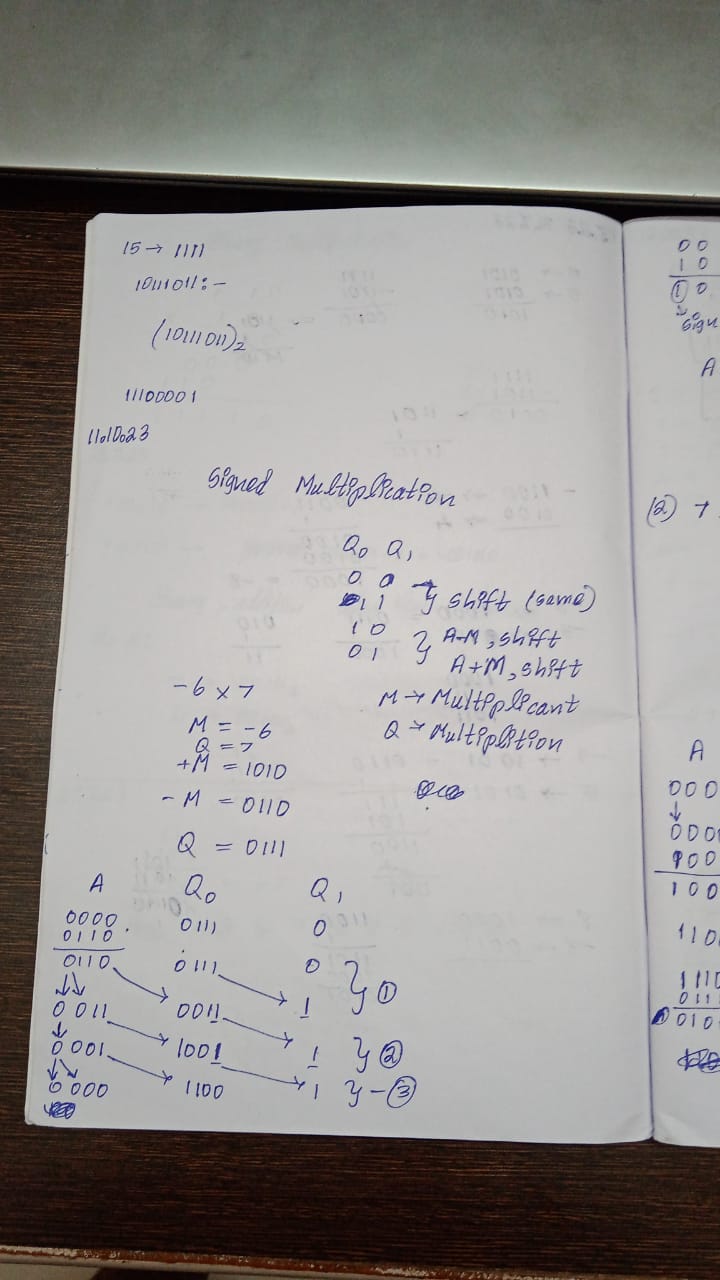 15 → 1111
10111011:-
(10111011)₂
11100001
11.10.23
Signed Multiplication
Q₀ Q₁
0 0
1 1 } shift (same)
1 0 } A-M, shift
0 1 A+M, shift
-6 x 7
M → Multiplicant
M = -6
Q → Multiplition
Q = 7
+M = 1010
-M = 0110
Q = 0111
A Q₀ Q₁
0000 0111 0
0110
0110 0111 0 } ①
0011 0011 1
0001 1001 1 } ②
0000 1100 1 } - ③
00
10
① 0
sign
A
(2) +
A
000
000
100
110
1110
011
010